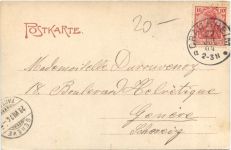 POSTKARTE.
20-
Mademoiselle Duvouvenoz
18. Boulevard Helvétique
Genève
Schweiz
2-3 N